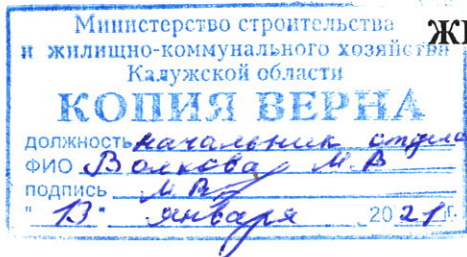 Министерство строительства
и жилищно-коммунального хозяйства
Калужской области
КОПИЯ ВЕРНА
должность начальник отдела
ФИО Волкова М.В
подпись
"13" января 2021 г.